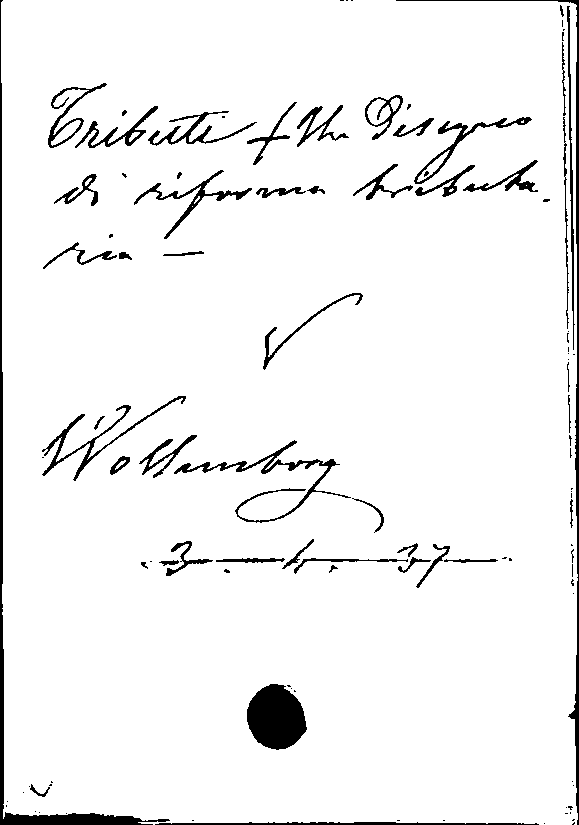 Tributi + Un Disegno
di riforma tributa-
ria —
V
Wollemborg
3. 4. 37